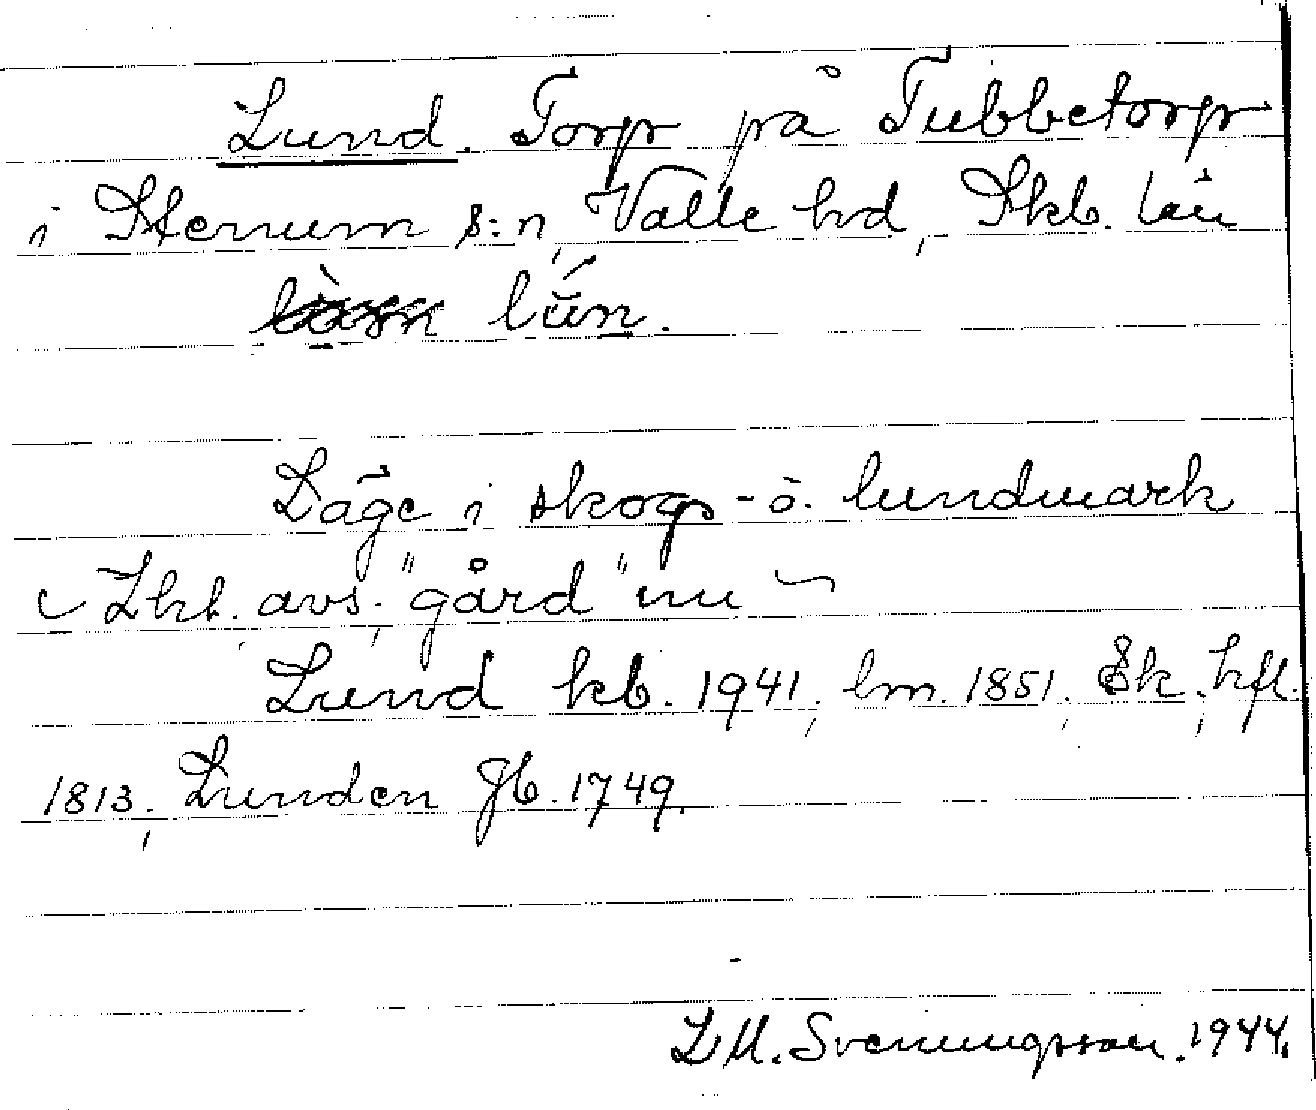 Lund. Torp på Tubbetorp
i Stenum s:n, Valle hd, Skb. län
lŭ́n.
Läge i skogs- o. lundmark
Lht. avs. "gård" nu
Lund kb. 1941; lm. 1851; Sk. hfl.
1813; Lunden Jb. 1749.
L M. Svenungsson. 1944.